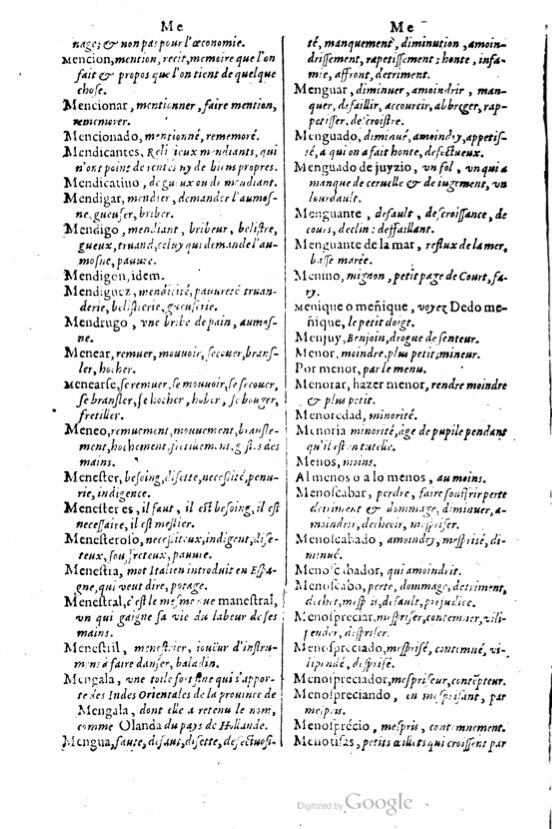 Me
nage; & non pas pour l'œconomie.
Mencion, mention, recit, memoire que l'on
fait & propos que l'on tient de quelque
chose.
Mencionar, mentionner, faire mention,
rememorer.
Mencionado, mentionné, rememoré.
Mendicantes, Religieux mendiants, qui
n'ont point de rentes ny de biens propres.
Mendicatiuo, de gueux ou de mendiant.
Mendigar, mendier, demander l'aumos-
ne, gueuser, briber.
Mendigo, mendiant, bribeur, belistre,
gueux, truand, celuy qui demande l'au-
mosne, pauure.
Mendigon, idem.
Mendiguez, mendicité, pauureté truan-
derie, belistrerie, gueuserie.
Mendrugo, vne bribe de pain, aumos-
ne.
Menear, remuer, mouuoir, secouer, brans-
ler, hocher.
Menearse, se remuer, se mouuoir, se secouer,
se bransler, se hocher, hober, se bouger,
fretiller.
Meneo, remuement, mouuement, bransle-
ment, hochement, fretillement, gestes des
mains.
Menester, besoing, disette, necessité, penu-
rie, indigence.
Menester es, il faut, il est besoing, il est
necessaire, il est mestier.
Menesteroso, necessiteux, indigent, dise-
teux, souffreteux, pauure.
Menestra, mot Italien introduit en Espa-
gne, qui veut dire, potage.
Menestral, c'est le mesme que manestral,
vn qui gaigne sa vie du labeur de ses
mains.
Menestril, menestrier, ioüeur d'instru-
mens à faire danser, baladin.
Mengala, vne toile fort fine qui s'appor-
te des Indes Orientales de la prouince de
Mengala, dont elle a retenu le nom,
comme Olanda du pays de Hollande.
Mengua, faute, defaut, disette, defectuosi-
Me
té, manquement, diminution, amoin-
drissement, rapetissement: honte, infa-
mie, affront, detriment.
Menguar, diminuer, amoindrir, man-
quer, defaillir, accourcir, abbreger, rap-
petisser, descroistre.
Menguado, diminué, amoindry, appetis-
sé, a qui on a fait honte, defectueux.
Menguado de juyzio, vn fol, vn qui a
manque de ceruelle & de iugement, vn
lourdault.
Menguante, default, descroissance, de
cours, declin: deffaillant.
Menguante de la mar, reflux de la mer,
basse marée.
Menino, mignon, petit page de Court, fa-
ry.
Menique o meñique, voyez Dedo me-
ñique, le petit doigt.
Menjuy, Benjoin, drogue de senteur.
Menor, moindre, plus petit, mineur.
Por menor, par le menu.
Menorar, hazer menor, rendre moindre
& plus petit.
Menoredad, minorité.
Menoria minorité, âge de pupile pendant
qu'il est en tutelle.
Menos, moins.
Al menos o a lo menos, au moins.
Menoscabar, perdre, faire souffrir perte
detriment & dommage, diminuer, a-
moindrir, dechecir, mespriser.
Menoscabado, amoindry, mesprisé, di-
minué.
Menoscabador, qui amoindrit.
Menoscabo, perte, dommage, detriment,
dechet, mespris, default, prejudice.
Menospreciar, mespriser, contemner, vili-
pender, desprisèr.
Menospreciado, mesprisé, contemné, vi-
lipendé, desprisé.
Menospreciador, mespriseur, contempteur.
Menospreciando, en mesprisant, par
mespris.
Menosprécio, mespris, contemnement.
Menotisas, petits œillets qui croissent par
Digitized by Google